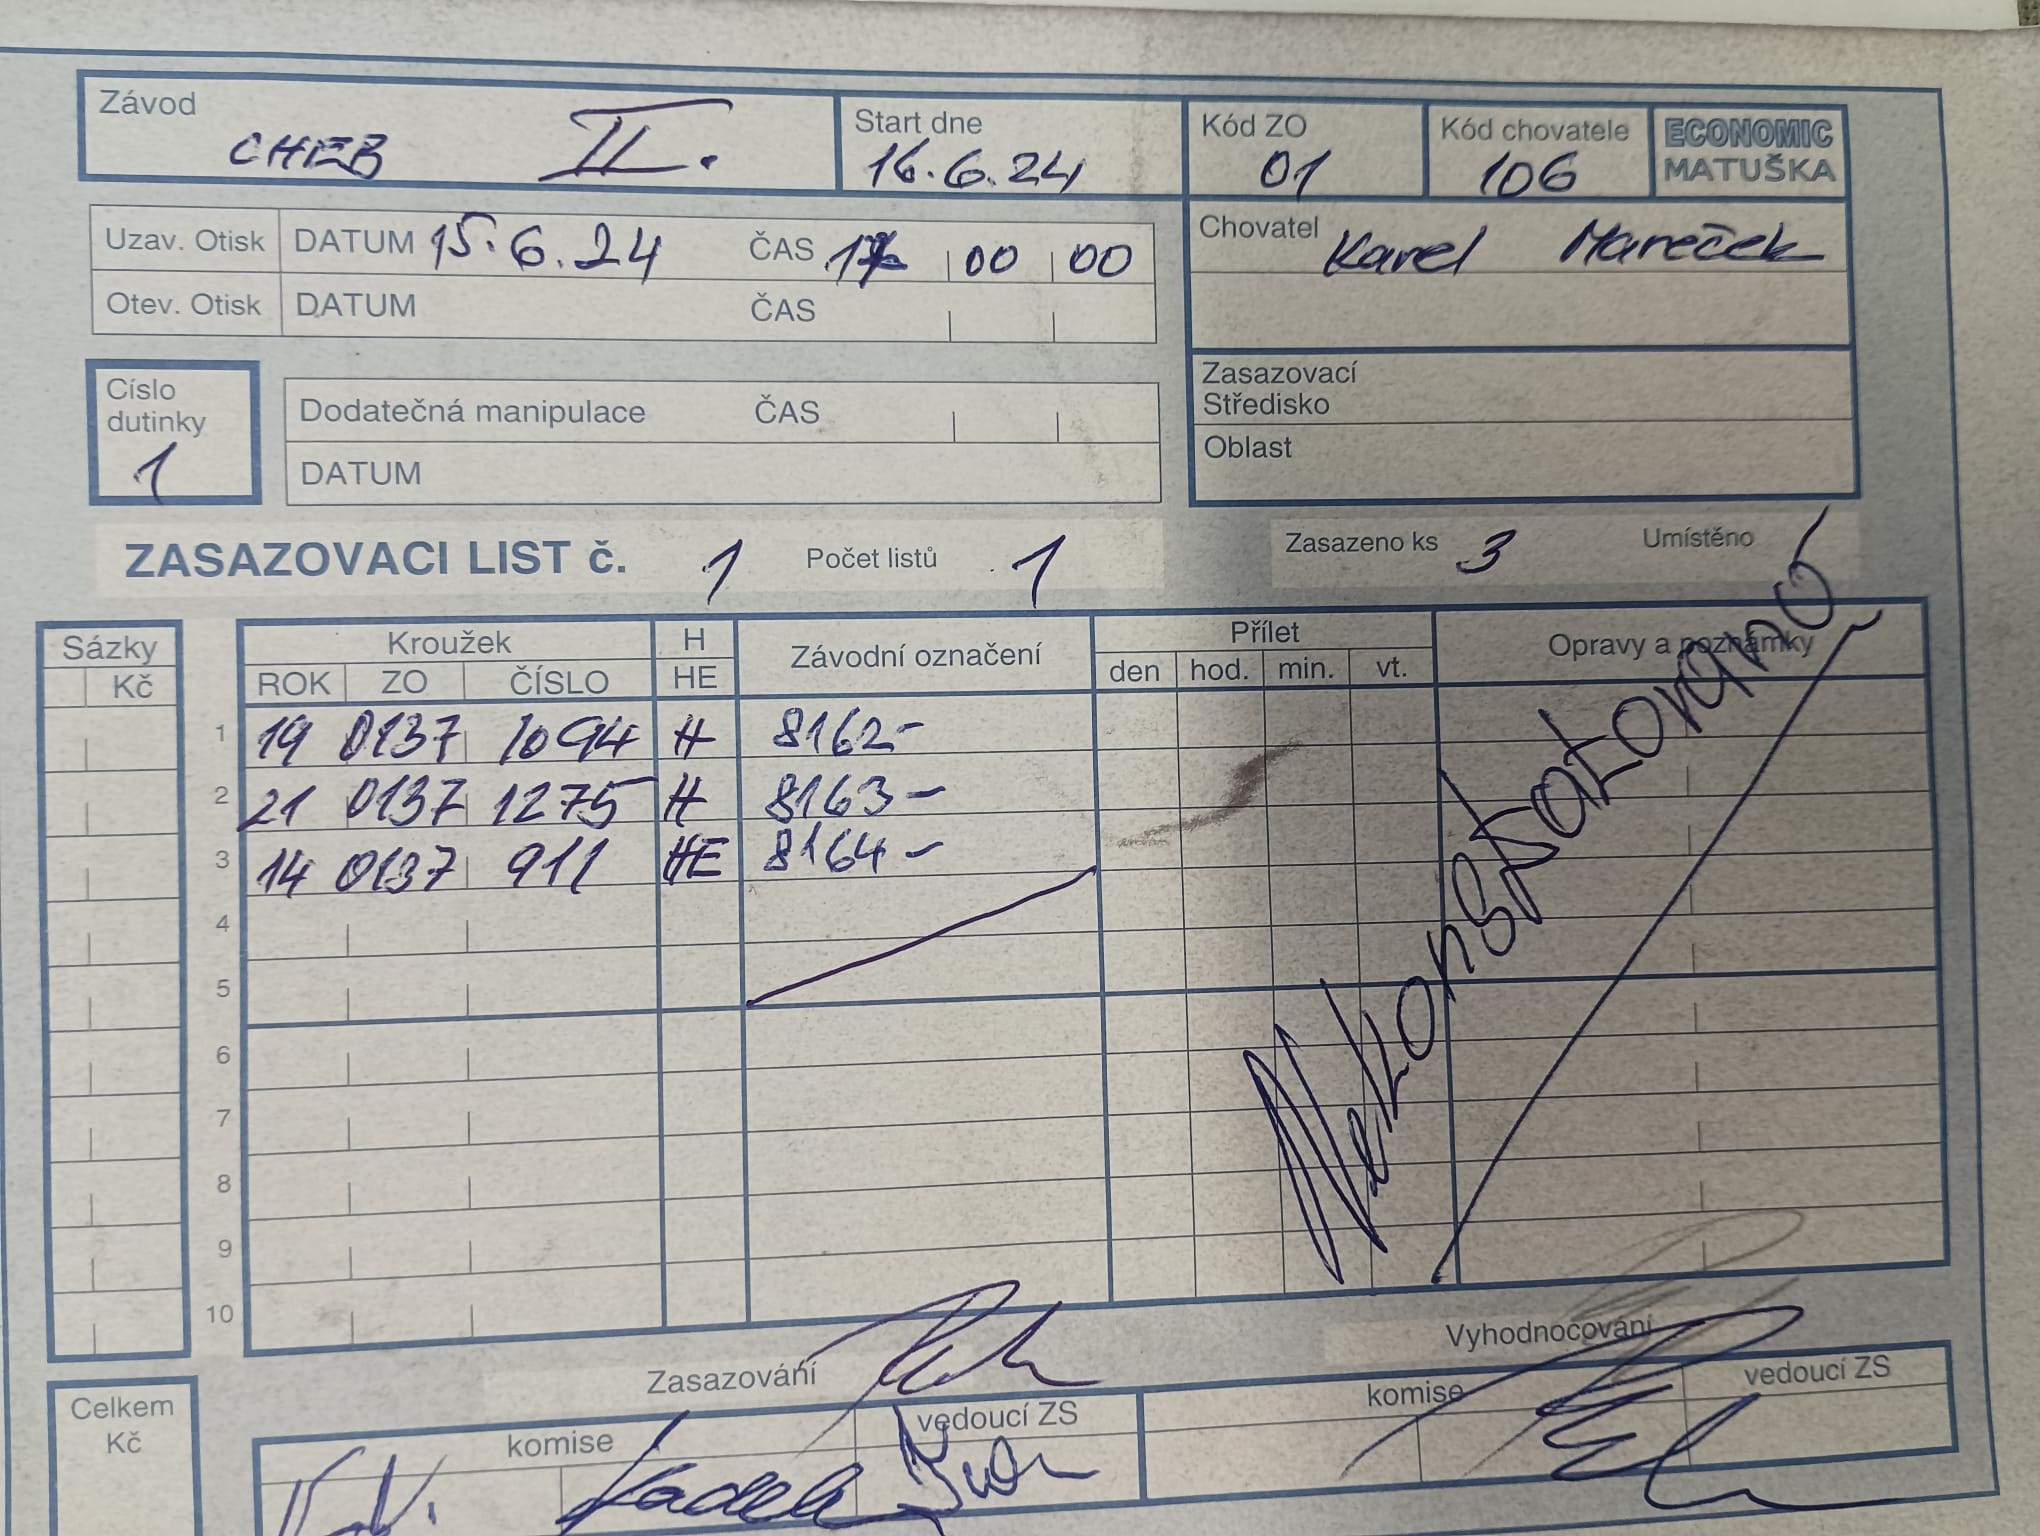 Závod CHEB II.
Start dne 16.6.24
Kód ZO 01
Kód chovatele 106
ECONOMIC
MATUŠKA
Uzav. Otisk DATUM 15.6.24 ČAS 00 00
Otev. Otisk DATUM ČAS
Chovatel Karel Mareček
Číslo
dutinky
1
Dodatečná manipulace ČAS
DATUM
Zasazovací
Středisko
Oblast
ZASAZOVACI LIST č. 1 Počet listů 1
Zasazeno ks 3 Umístěno
Sázky
Kč
Kroužek H Závodní označení Přílet Opravy a poznámky
ROK ZO ČÍSLO HE den hod. min. vt.
1 19 0137 1094 H 8162-
2 21 0137 1275 H 8163-
3 14 0137 911 HE 8164-
4
5
6
7
8
9
10
Nekonstatováno
Zasazování
Vyhodnocování
Celkem
Kč
komise vedoucí ZS
komise vedoucí ZS